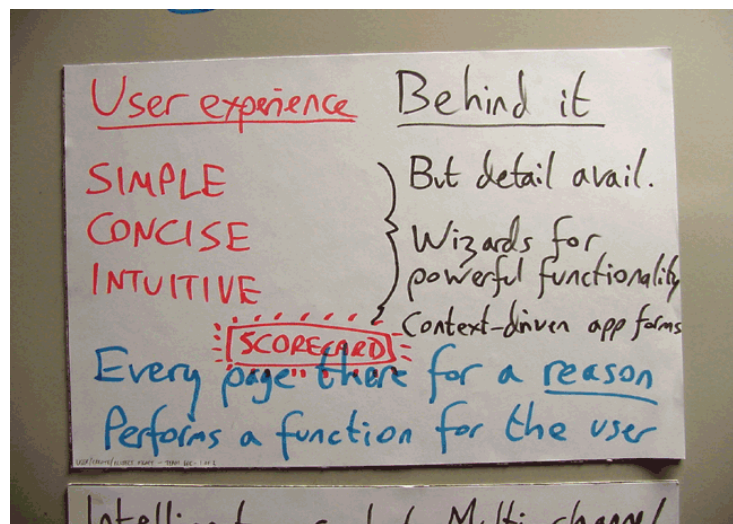 User experience
SIMPLE
CONCISE
INTUITIVE
SCORECARD
Behind it
But detail avail.
Wizards for
powerful functionality
Context-driven app forms
Every page there for a reason
Performs a function for the user
Multi channel